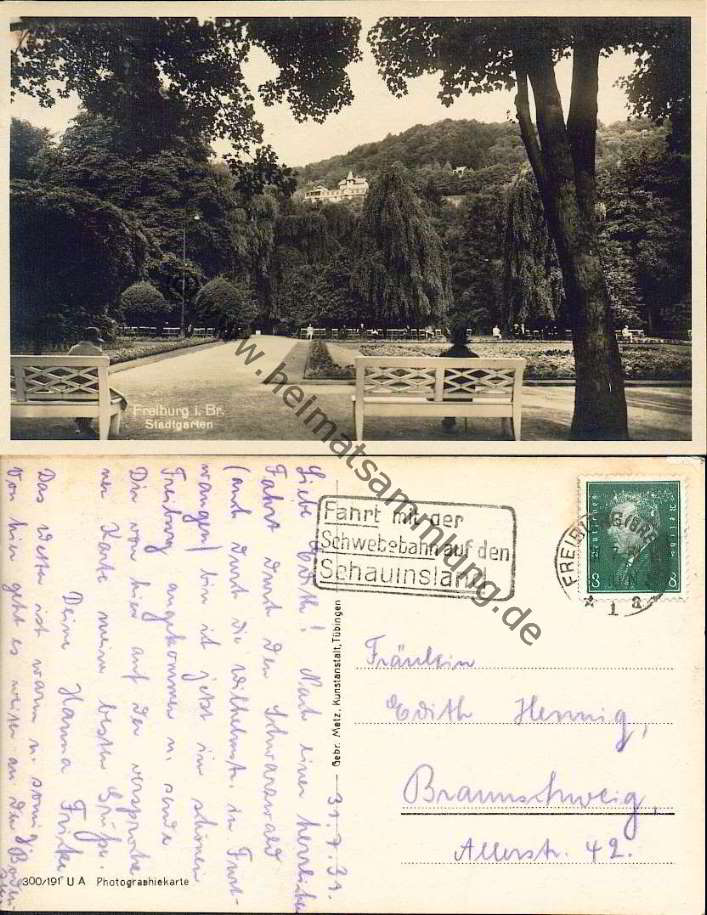 Freiburg i. Br.
Stadtgarten
heimatsammlung.de
Fahrt mit der
Schwebebahn auf den
Schauinsland
FREIBURG (BRSG
1 a
8 8
Fräulein
Edith Hennig,
Braunschweig,
Allerstr. 42.
Gebr. Metz, Kunstanstalt, Tübingen
31.7.31.
Liebe Edith! Nach einer herrlichen
Fahrt durch den Schwarzwald
(auch durch die Wilhelmstr. in Furt-
wangen) bin ich jetzt im schönen
Freiburg angekommen u. sende
Dir von hier auf der versproche-
nen Karte meine besten Grüße.
Deine Hanna
Das Wetter ist warm u. sonnig.
Von hier geht es weiter an den Boden-
300/191 U A Photographiekarte